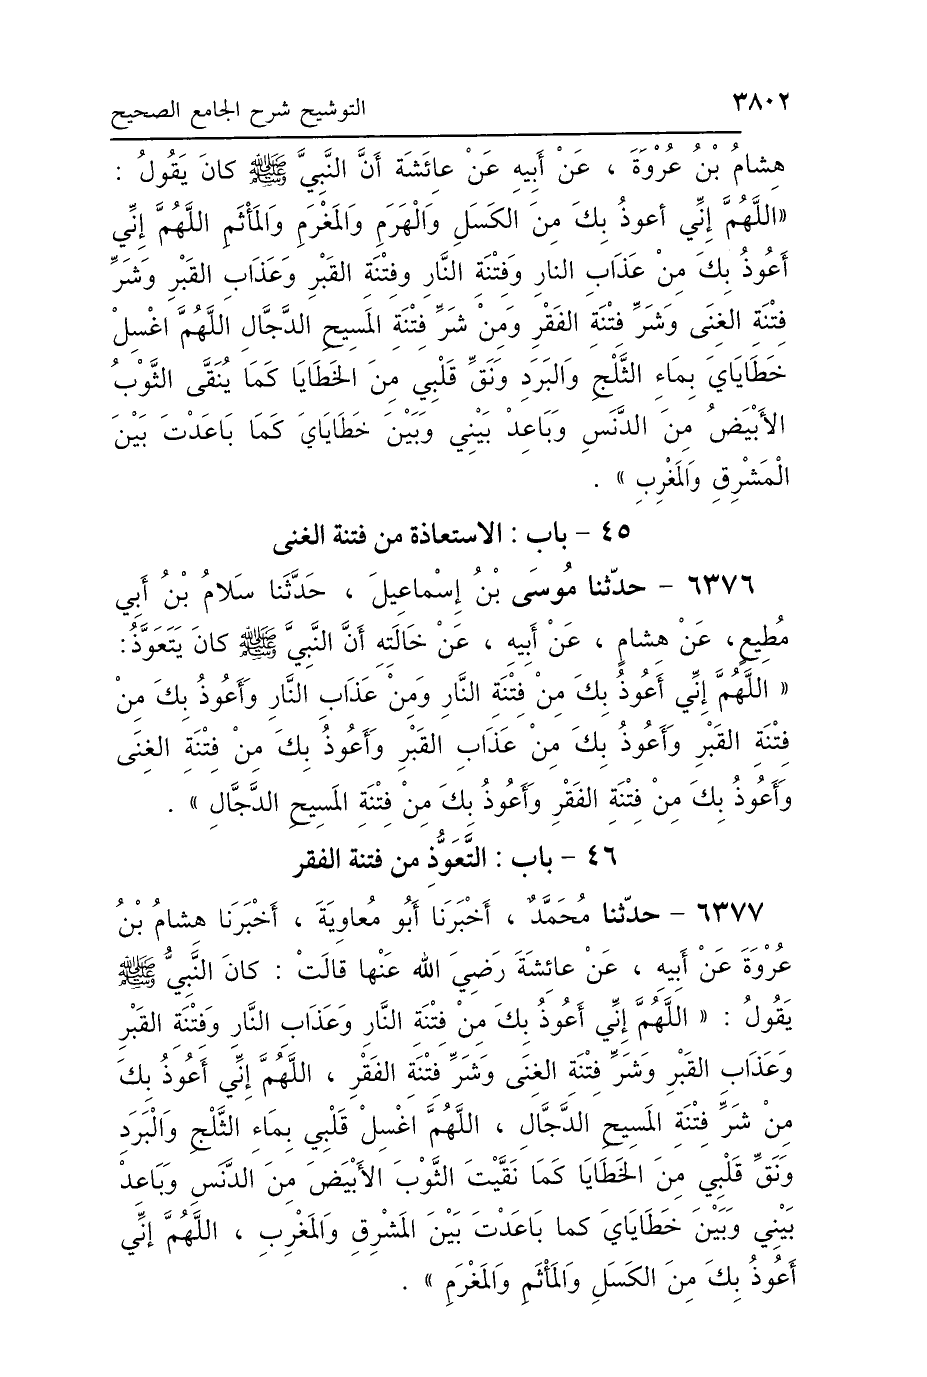 ٣٨٠٢
التوشيح شرح الجامع الصحيح
هِشامُ بْنُ عُرْوَةَ ، عَنْ أَبِيهِ عَنْ عائَشَة أَنَّ النَّبِيَّ ﷺ كانَ يَقُولُ :
«اللَّهُمَّ إِنِّي أعوذُ بِكَ مِنَ الكَسَلِ وَالْهَرَمِ وَالمَغْرَمِ وَالمَأْثَمِ اللَّهُمَّ إِنِّي
أَعُوذُ بِكَ مِنْ عَذَابِ النارِ وَفِتْنَةِ النَّارِ وفِتْنَةِ القَبْرِ وَعَذَابِ القَبْرِ وَشَرِّ
فِتْنَةِ الغِنَى وَشَرِّ فِتْنَةِ الفَقْرِ وَمِنْ شَرِّ فِتْنَةِ المَسِيحِ الدَّجَّالِ اللَّهُمَّ اغْسِلْ
خَطَايَايَ بِمَاءِ الثَّلْجِ وَالبَرَدِ وَنَقِّ قَلْبِي مِنَ الخَطَايَا كَمَا يُنَقَّى الثَّوْبُ
الأَبْيَضُ مِنَ الدَّنَسِ وَبَاعِدْ بَيْنِي وَبَيْنَ خَطَايَايَ كَمَا بَاعَدْتَ بَيْنَ
الْمَشْرِقِ وَالمَغْرِبِ » .
٤٥ - باب : الاستعاذة من فتنة الغنى
٦٣٧٦ - حدّثنا مُوسَى بْنُ إِسْماعِيلَ ، حَدَّثَنا سَلامُ بْنُ أَبِي
مُطِيعٍ، عَنْ هِشامٍ ، عَنْ أَبِيهِ ، عَنْ خالَتِهِ أَنَّ النَّبِيَّ ﷺ كانَ يَتَعَوَّذُ:
« اللَّهُمَّ إِنِّي أَعُوذُ بِكَ مِنْ فِتْنَةِ النَّارِ وَمِنْ عَذَابِ النَّارِ وَأَعُوذُ بِكَ مِنْ
فِتْنَةِ القَبْرِ وأَعُوذُ بِكَ مِنْ عَذَابِ القَبْرِ وَأَعُوذُ بِكَ مِنْ فِتْنَةِ الغِنَى
وَأَعُوذُ بِكَ مِنْ فِتْنَةِ الفَقْرِ وأَعُوذُ بِكَ مِنْ فِتْنَةِ المَسِيحِ الدَّجَّالِ » .
٤٦ - باب : التَّعَوُّذِ من فتنة الفقر
٦٣٧٧ - حدّثنا مُحَمَّدٌ ، أَخْبَرَنا أَبُو مُعاوِيَةَ ، أَخْبَرَنَا هشامُ بْنُ
عُرْوَةَ عَنْ أَبِيهِ ، عَنْ عائِشَةَ رَضِيَ الله عَنْها قالَتْ : كانَ النَّبِيُّ ﷺ
يَقُولُ : « اللَّهُمَّ إِنِّي أَعُوذُ بِكَ مِنْ فِتْنَةِ النَّارِ وَعَذَابِ النَّارِ وَفِتْنَةِ القَبْرِ
وَعَذَابِ القَبْرِ وَشَرِّ فِتْنَةِ الغِنَى وَشَرِّ فِتْنَةِ الفَقْرِ ، اللَّهُمَّ إِنِّي أَعُوذُ بِكَ
مِنْ شَرِّ فِتْنَةِ المَسِيحِ الدَّجَّالِ ، اللَّهُمَّ اغْسِلْ قَلْبِي بِمَاءِ الثَّلْجِ وَالْبَرَدِ
وَنَقِّ قَلْبِي مِنَ الخَطَايَا كَمَا نَقَّيْتَ الثَّوْبَ الأَبْيَضَ مِنَ الدَّنَسِ وَبَاعِدْ
بَيْنِي وَبَيْنَ خَطَايَايَ كما بَاعَدْتَ بَيْنَ المَشْرِقِ وَالمَغْرِبِ ، اللَّهُمَّ إِنِّي
أَعُوذُ بِكَ مِنَ الكَسَلِ وَالمَأْثَمِ وَالمَغْرَمِ » .